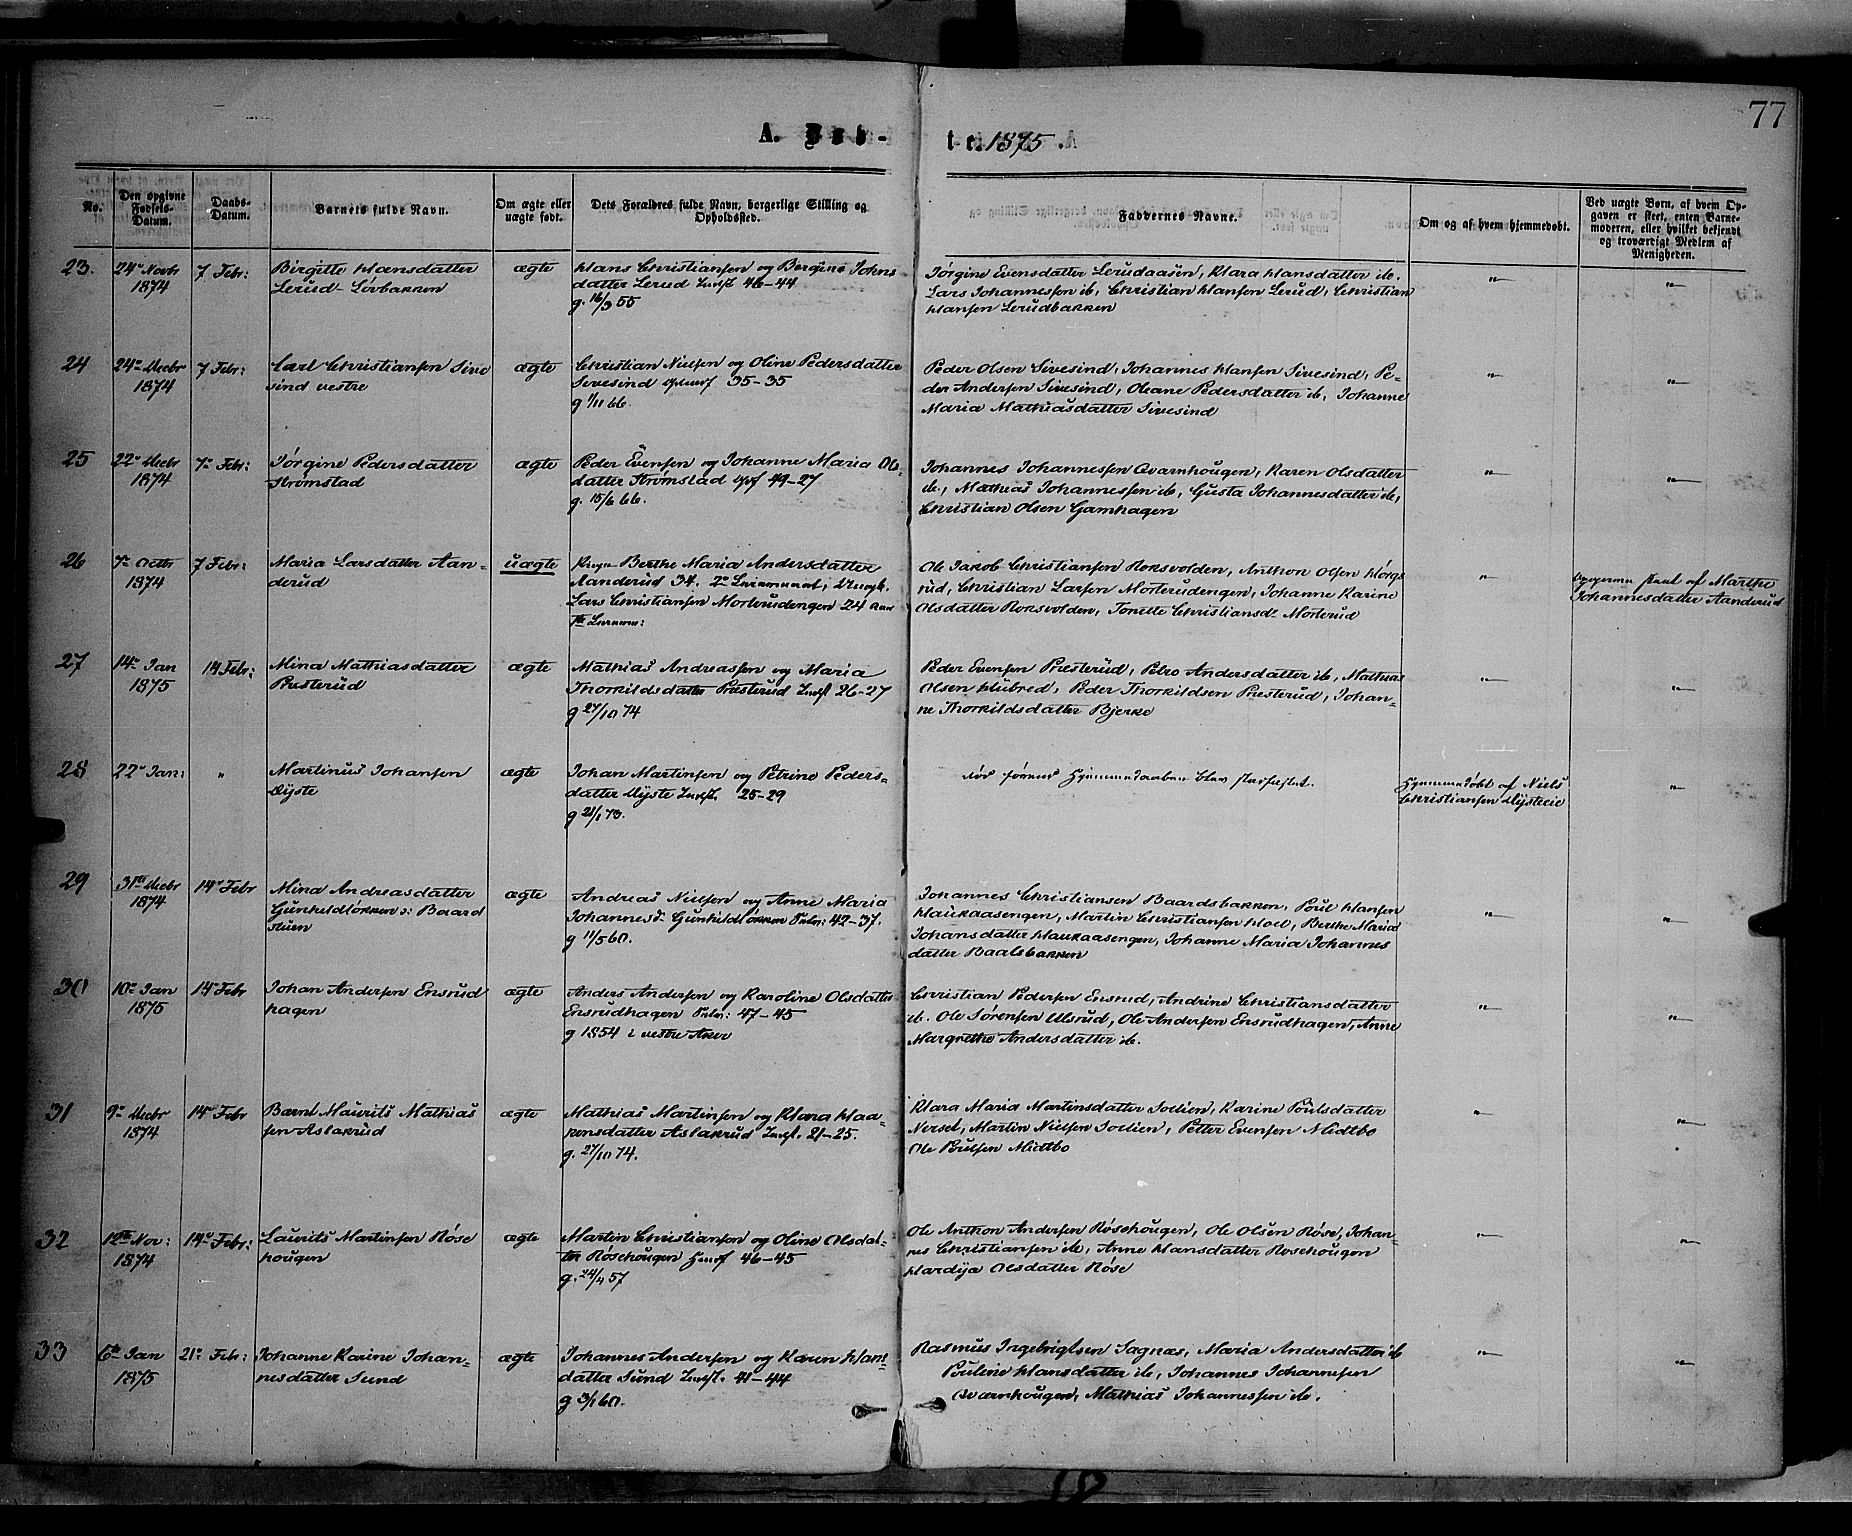 77
A. Døb-
te. 1875.
No.
Den opgivne Fødsels-Datum.
Daabs-Datum.
Barnets fulde Navn.
Om ægte eller uægte født.
Dets Forældres fulde Navn, borgerlige Stilling og Opholdssted.
Faddernes Navne.
Om og af hvem hjemmedøbt.
Ved uægte Børn, af hvem Opgaven er skeet, enten Barnemoderen, eller hvilket bekjendt og troværdigt Medlem af Menigheden.
23. 24de Novbr 1874
7 Febr:
Birgitte Hansdatter
Lerud-Løvbakken
ægte
Hans Christiansen og Bergine Johns
datter Lerud Indst. 46-44
g. 16/3 55
Jørgine Evensdatter Lerudaasen, Klara Hansdatter ib.
Lars Johannessen ib, Christian Hansen Lerud, Christian
Hansen Lerudbakken
24 24de Decbr 1874
7 Febr:
Carl Christiansen Sive
sind vestre
ægte
Christian Nielsen og Oline Pedersdatter
Sivesind 35-35
g 1/11 66.
Peder Olsen Sivesind, Johannes Hansen Sivesind, Pe-
der Andersen Sivesind, Oleane Pedersdatter ib, Johanne
Maria Mathiasdatter Sivesind
25 22de Decbr 1874
7de Febr:
Jørgine Pedersdatter
Strømstad
ægte
Peder Evensen og Johanne Maria Ols-
datter Strømstad 49-27
g. 15/6 66.
Johannes Johannessen Qvarnhougen, Karen Olsdatter
ib, Mathias Johannessen ib, Gusta Johannesdatter ib,
Christian Olsen Gamhagen
26 7de Octbr 1874
7 Febr:
Maria Larsdatter Aan-
derud
uægte
Berthe Maria Andersdatter
Aanderud 34. 2de Leiermaal, Ungk.
Lars Christiansen Morterudengen 24
1ste Leierm:
Ole Jakob Christiansen Roksvolden, Anthon Olsen
rud, Christian Larsen Morterudengen, Johanne Karine
Olsdatter Roksvolden, Tonette Christiansd. Morterud
Opgaven skeet af Marthe
Johannesdatter Aanderud
27 14de Jan 1875
14 Febr:
Mina Mathiasdatter
Præsterud
ægte
Mathias Andreassen og Maria
Thorkildsdatter Præsterud Indst. 26-27
g 27/10 74
Peder Evensen Præsterud, Petro Andersdatter ib, Mathias
Olsen Hubred, Peder Thorkildsen Præsterud, Johan-
ne Thorkildsdatter Bjerke
28 22de Jan:
"
Martinus Johansen
Dyste
ægte
Johan Martinsen og Petrine Peders-
datter Dyste Indst. 25-29
g 21/1 73.
Døde førend Hjemmedaaben blev stadfæstet.
Hjemmedøbt af Niels
Christiansen Dysteeie
29 31te Decbr 1874
14de Febr
Mina Andreasdatter
Gunhildløkken ɔ: Baard
stuen
ægte
Andreas Nielsen og Anne Maria
Johannesd. Gunhildløkken Inder: 42-37.
g 11/5 60.
Johannes Christiansen Baardsbakken, Poul Hansen
Haukaasengen, Martin Christiansen Hoel, Berthe Maria
Johansdatter Haukaasengen, Johanne Maria Johannes
datter Baalsbakken
30 10de Jan 1875
14de Febr
Johan Andersen Ensrud
hagen
ægte
Anders Andersen og Karoline Olsdatter
Ensrudhagen Inder: 47-45
g 1854 i vestre Aker
Christian Pedersen Ensrud, Andrine Christiansdatter
ib. Ole Sørensen Ulsrud, Ole Andersen Ensrudhagen, Anne
Margrethe Andersdatter ib.
31 9de Decbr 1874
14de Febr
Bernt Maurits Mathias
sen Aslakrud
ægte
Mathias Martinsen og Klara Haa-
kensdatter Aslakrud Indst. 21-25.
g. 27/10 74.
Klara Maria Martinsdatter Solien, Karine Poulsdatter
Nerset, Martin Nielsen Solien, Petter Evensen Midtbo
Ole Poulsen Midtbo
32 12te Nov: 1874
14de Febr:
Laurits Martinsen Røse
hougen
ægte
Martin Christiansen og Oline Olsdat-
ter Røsehougen 46-45
g. 24/4 57
Ole Anthon Andersen Røsehougen, Ole Olsen Røse, Johan-
nes Christiansen ib, Anne Hansdatter Rosehougen
Hardya Olsdatter Røse
33 6te Jan 1875
21de Febr:
Johanne Karine Johan-
nesdatter Sund
ægte
Johannes Andersen og Karen Hans
datter Sund Indst. 41-44
g 3/1 60.
Rasmus Ingebrigtsen Sagnæs, Maria Andersdatter ib
Pauline Hansdatter ib, Johannes Johannesen
Qværnhougen, Mathias Johannessen ib.